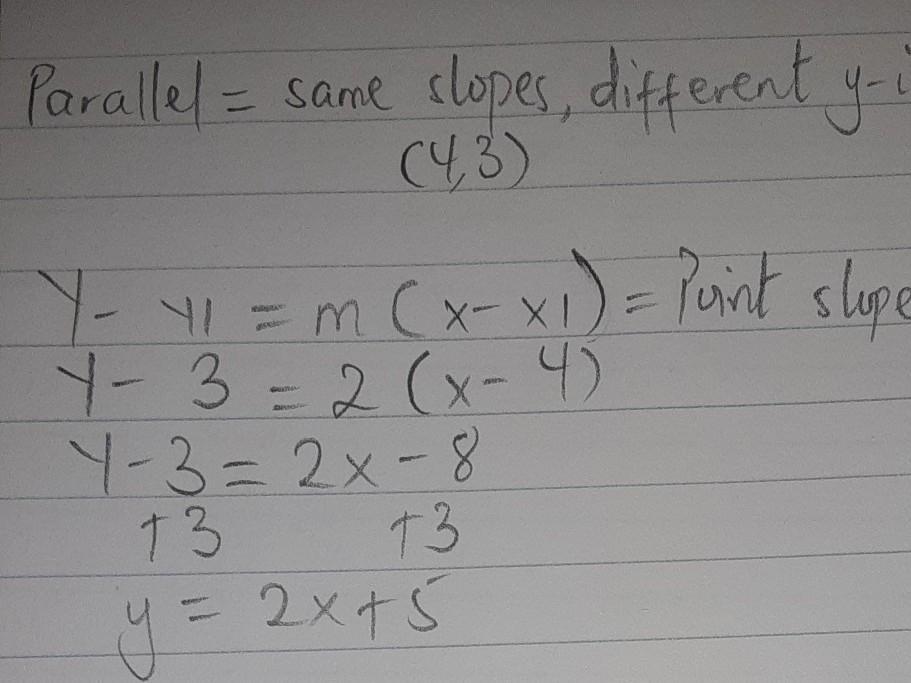 Parallel = same slopes, different y-i
(4,3)
Y - Y1 = m (x - x1) = Point slope
Y - 3 = 2 (x - 4)
Y - 3 = 2x - 8
+3 +3
y = 2x + 5